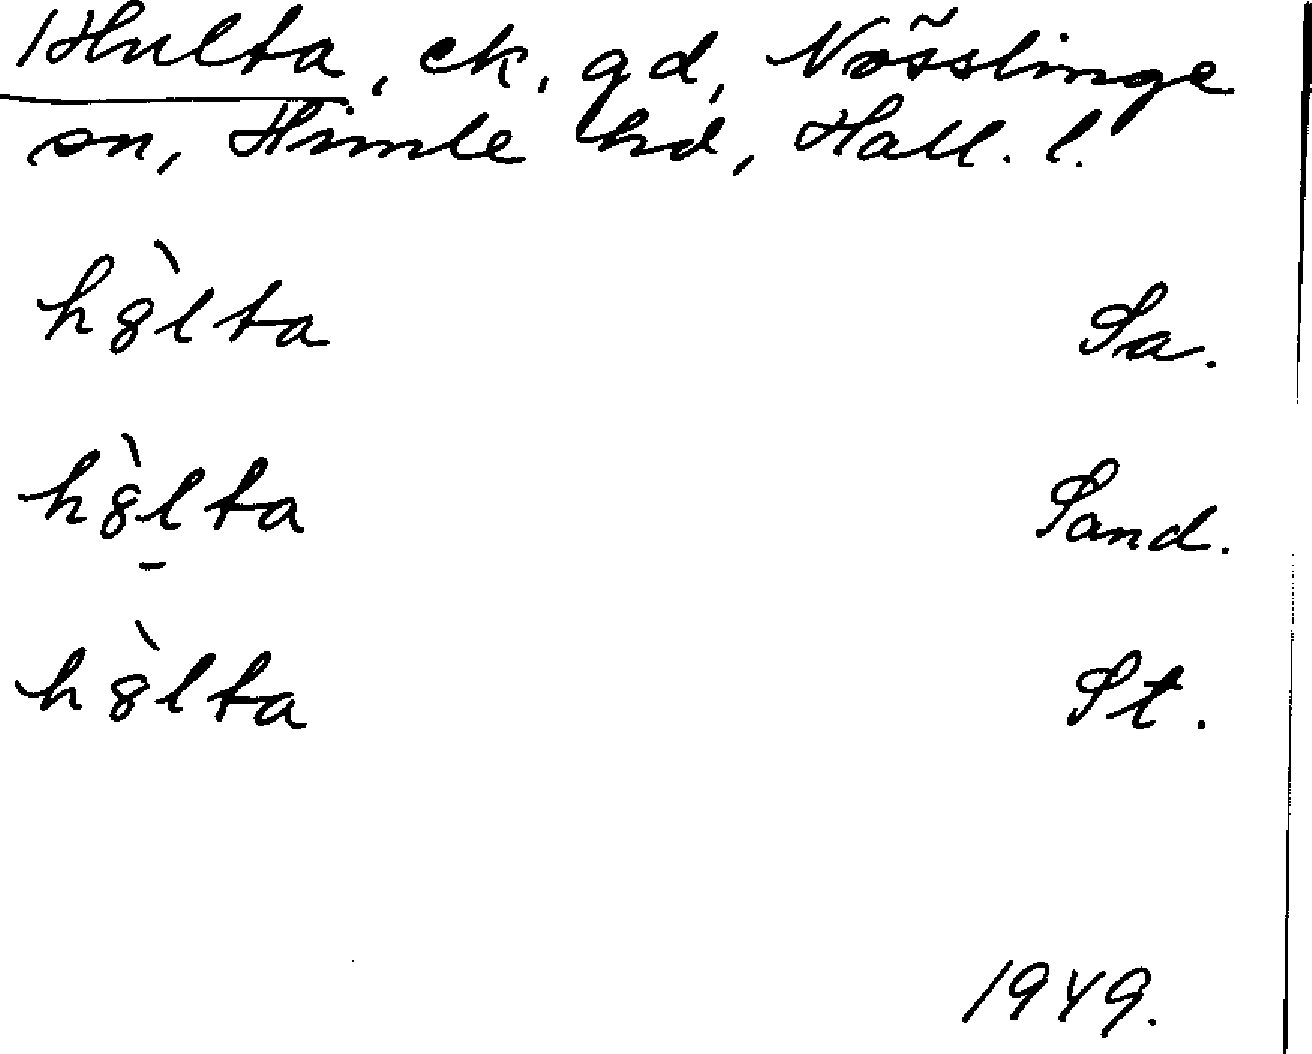 Hulta, ek. gd, Nösslinge
sn, Himle hd, Hall. l.
h8̀lta Sa.
h8̠̀lta Sand.
h8̀lta St.
1949.